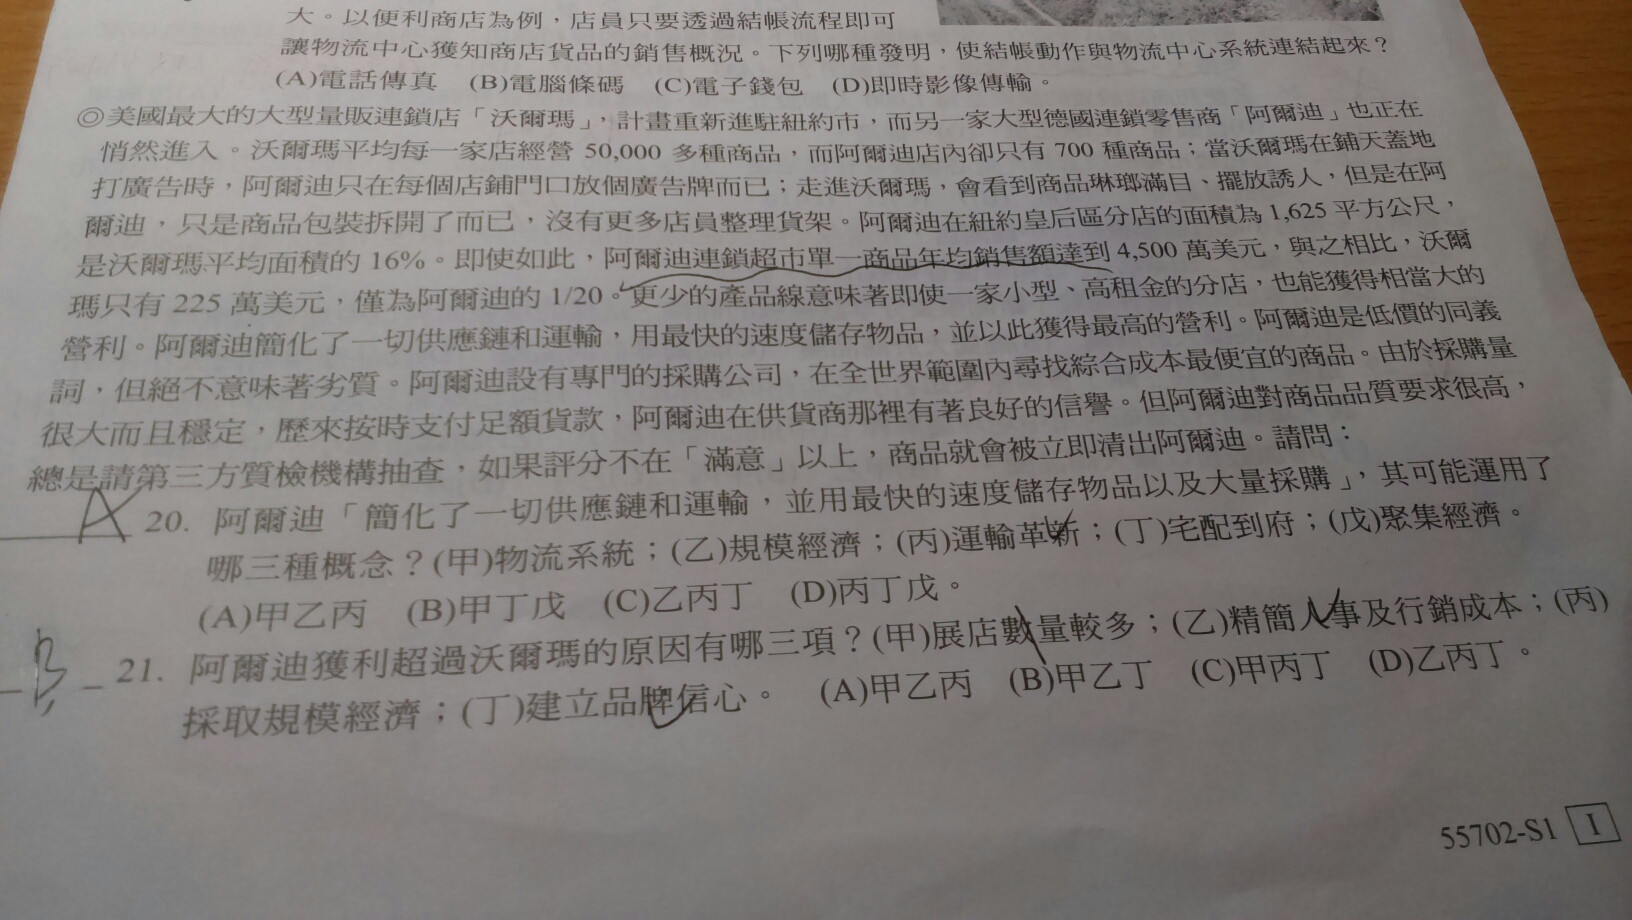 大。以便利商店為例，店員只要透過結帳流程即可
讓物流中心獲知商店貨品的銷售概況。下列哪種發明，使結帳動作與物流中心系統連結起來？
(A)電話傳真 (B)電腦條碼 (C)電子錢包 (D)即時影像傳輸。
◎美國最大的大型量販連鎖店「沃爾瑪」，計畫重新進駐紐約市，而另一家大型德國連鎖零售商「阿爾迪」也正在
悄然進入。沃爾瑪平均每一家店經營 50,000 多種商品，而阿爾迪店內卻只有 700 種商品；當沃爾瑪在鋪天蓋地
打廣告時，阿爾迪只在每個店鋪門口放個廣告牌而已；走進沃爾瑪，會看到商品琳瑯滿目、擺放誘人，但是在阿
爾迪，只是商品包裝拆開了而已，沒有更多店員整理貨架。阿爾迪在紐約皇后區分店的面積為 1,625 平方公尺，
是沃爾瑪平均面積的 16%。即使如此，阿爾迪連鎖超市單一商品年均銷售額達到 4,500 萬美元，與之相比，沃爾
瑪只有 225 萬美元，僅為阿爾迪的 1/20。更少的產品線意味著即使一家小型、高租金的分店，也能獲得相當大的
營利。阿爾迪簡化了一切供應鏈和運輸，用最快的速度儲存物品，並以此獲得最高的營利。阿爾迪是低價的同義
詞，但絕不意味著劣質。阿爾迪設有專門的採購公司，在全世界範圍內尋找綜合成本最便宜的商品。由於採購量
很大而且穩定，歷來按時支付足額貨款，阿爾迪在供貨商那裡有著良好的信譽。但阿爾迪對商品品質要求很高，
總是請第三方質檢機構抽查，如果評分不在「滿意」以上，商品就會被立即清出阿爾迪。請問：
A 20. 阿爾迪「簡化了一切供應鏈和運輸，並用最快的速度儲存物品以及大量採購」，其可能運用了
哪三種概念？(甲)物流系統；(乙)規模經濟；(丙)運輸革新；(丁)宅配到府；(戊)聚集經濟。
(A)甲乙丙 (B)甲丁戊 (C)乙丙丁 (D)丙丁戊。
B 21. 阿爾迪獲利超過沃爾瑪的原因有哪三項？(甲)展店數量較多；(乙)精簡人事及行銷成本；(丙)
採取規模經濟；(丁)建立品牌信心。 (A)甲乙丙 (B)甲乙丁 (C)甲丙丁 (D)乙丙丁。
55702-S1 I